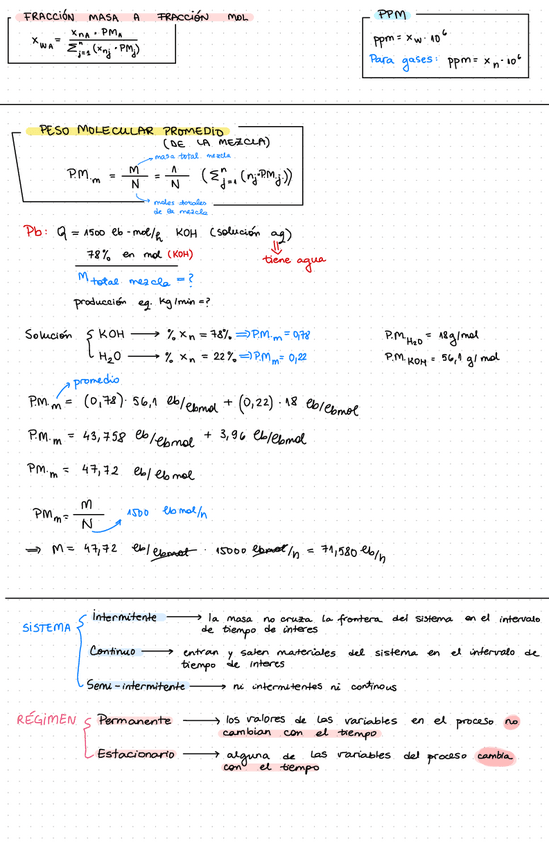 FRACCIÓN MASA A FRACCIÓN MOL
x_WA = x_nA · PM_A / Σ_{j=1}^n (x_nj · PM_j)
PPM
ppm = x_w · 10^6
Para gases: ppm = x_n · 10^6
PESO MOLECULAR PROMEDIO
(DE LA MEZCLA)
masa total mezcla
P.M._m = M/N = 1/N (Σ_{j=1}^n (n_j · PM_j))
moles totales
de la mezcla
Pb: Q = 1500 lb-mol/h KOH (solución aq)
78% en mol (KOH)
tiene agua
M total mezcla = ?
producción eq. Kg/min = ?
Solución { KOH → % x_n = 78% ⇒ P.M._m = 0,78
H2O → % x_n = 22% ⇒ P.M._m = 0,22
P.M._H2O = 18 g/mol
P.M._KOH = 56,1 g/mol
promedio
P.M._m = (0,78) · 56,1 lb/lbmol + (0,22) · 18 lb/lbmol
P.M._m = 43,758 lb/lbmol + 3,96 lb/lbmol
PM._m = 47,72 lb/lbmol
PM_m = M/N → 1500 lbmol/h
⇒ M = 47,72 lb/lbmol · 15000 lbmol/h = 71,580 lb/h
SISTEMA { Intermitente → la masa no cruza la frontera del sistema en el intervalo
de tiempo de interes
Continuo → entran y salen materiales del sistema en el intervalo de
tiempo de interes
Semi-intermitente → ni intermitentes ni continous
RÉGIMEN { Permanente → los valores de las variables en el proceso no
cambian con el tiempo
Estacionario → alguna de las variables del proceso cambia
con el tiempo